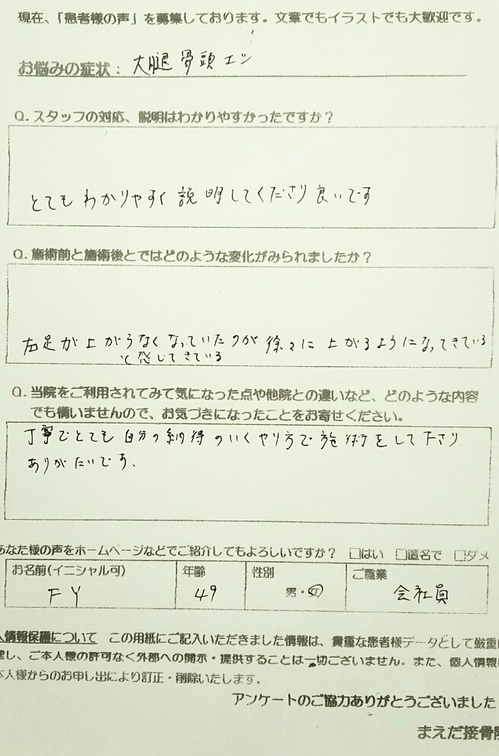 現在、「患者様の声」を募集しております。文章でもイラストでも大歓迎です。
お悩みの症状: 大腿骨頭エシ
Q.スタッフの対応、説明はわかりやすかったですか?
とてもわかりやすく説明してくださり良いです
Q.施術前と施術後とではどのような変化がみられましたか?
右足が上がらなくなっていたのが徐々に上がるようになってきている
と感じてきている
Q.当院をご利用されてみて気になった点や他院との違いなど、どのような内容
でも構いませんので、お気づきになったことをお寄せください。
丁寧でとても自分の納得のいくやり方で施術をして下さり
ありがたいです.
あなた様の声をホームページなどでご紹介してもよろしいですか? □はい □匿名で □ダメ
お名前(イニシャル可) 年齢 性別 ご職業
F Y 49 男・女 会社員
人情報保護について この用紙にご記入いただきました情報は、貴重な患者様データとして厳重に
理し、ご本人様の許可なく外部への開示・提供することは一切ございません。また、個人情報は
本人様からのお申し出により訂正・削除いたします。
アンケートのご協力ありがとうございました
まえだ接骨院